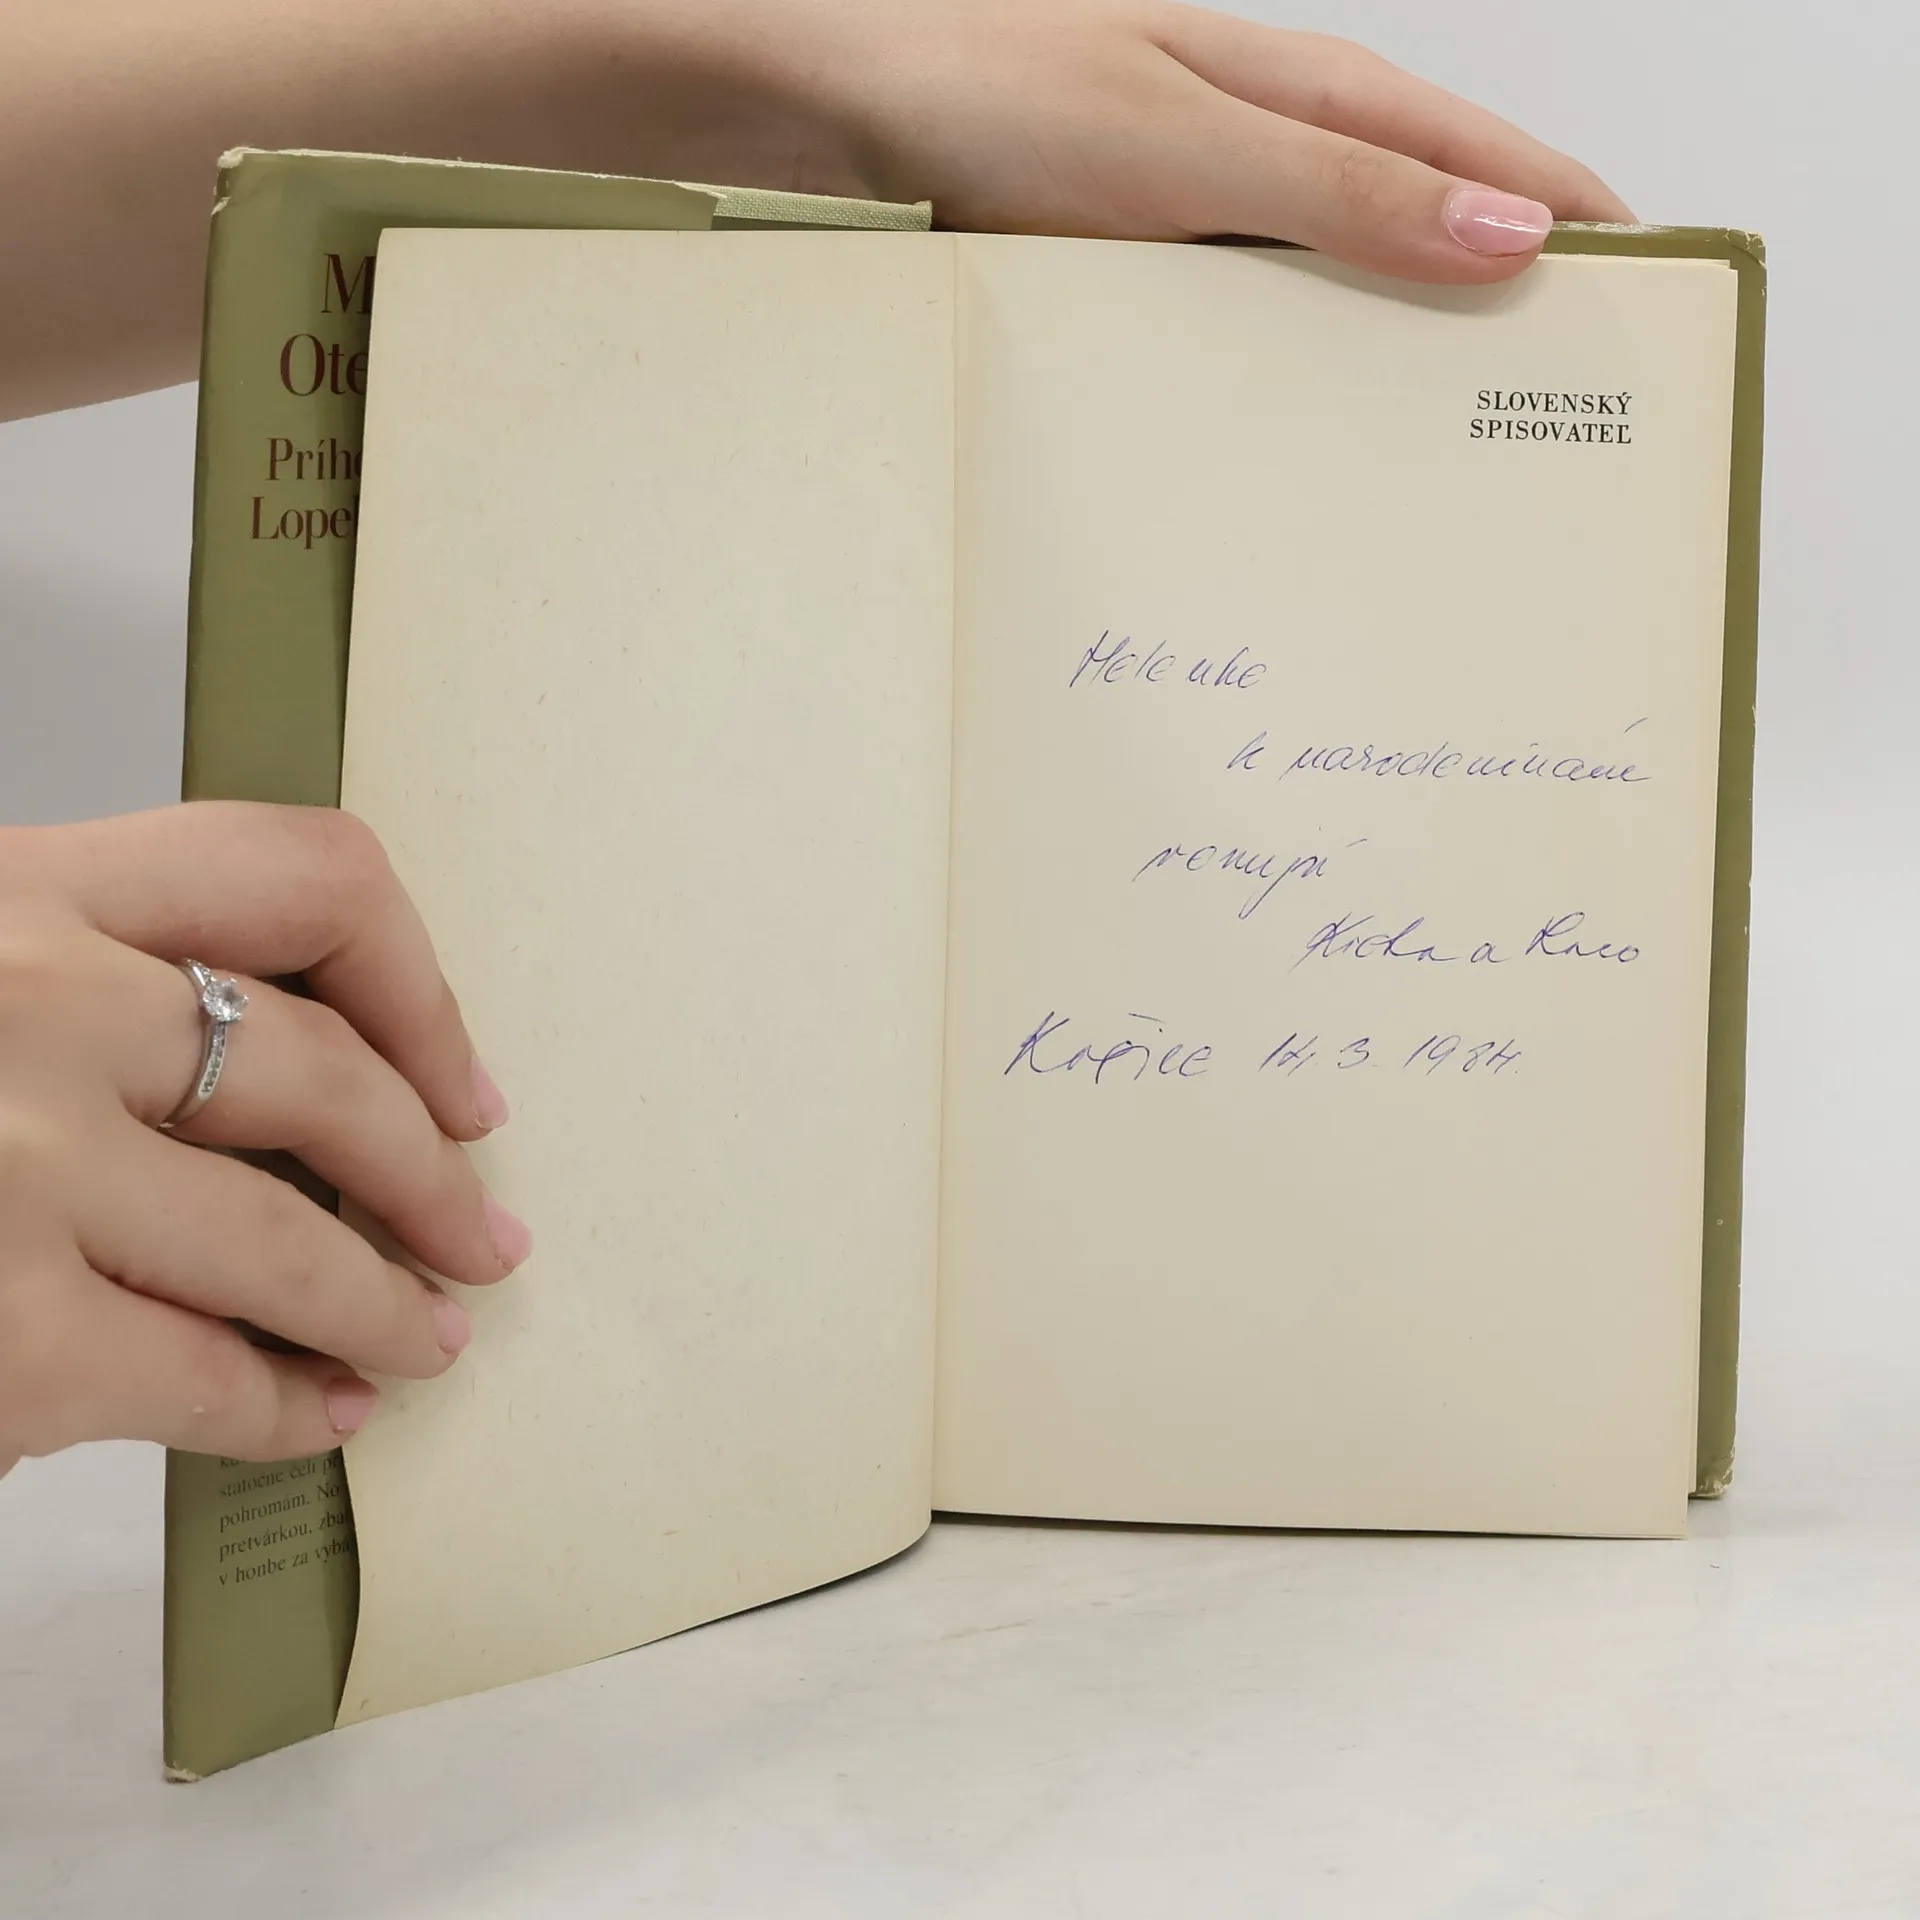 M
Ote
Príh
Lope
statočne čelí pr
pohromám. No
pretvárkou, zba
v honbe za vyb
SLOVENSKÝ
SPISOVATEĽ
Helenke
k narodeninám
venujú
a
Košice 14. 3. 1984.